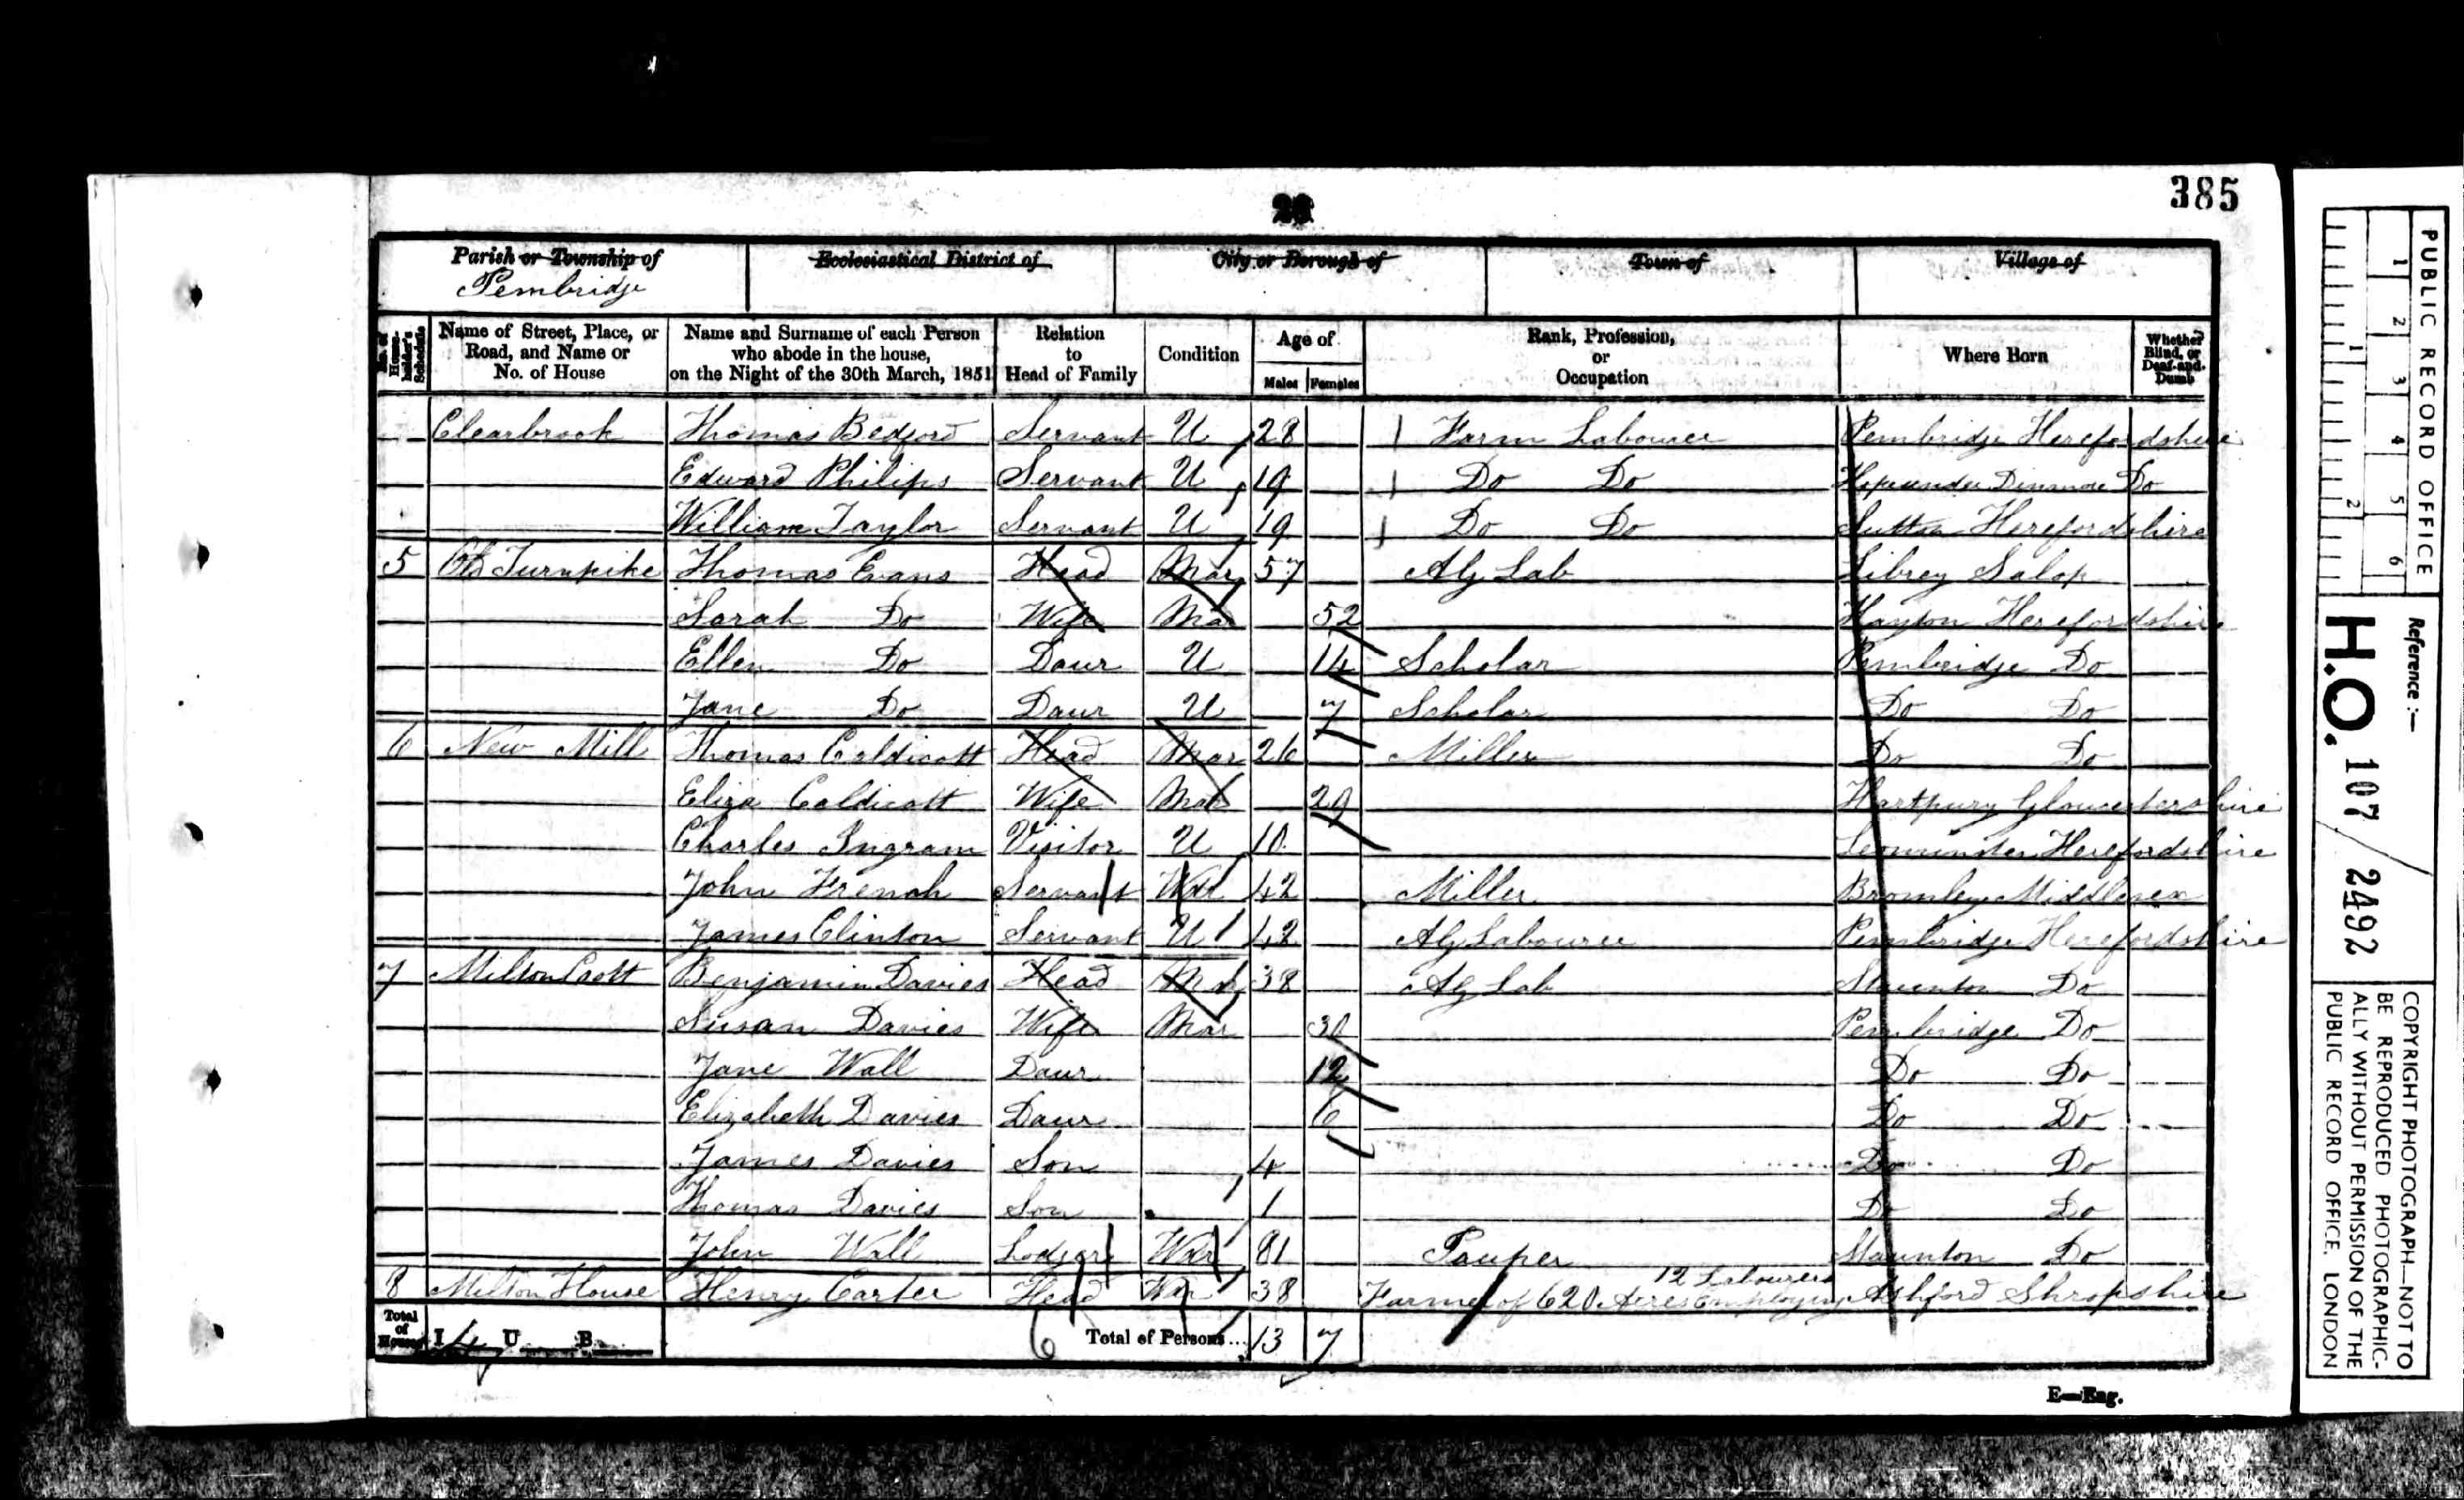 385
Parish or Township of
Pembridge
Ecclesiastical District of
City or Borough of
Town of
Village of
No. of Householder's Schedule
Name of Street, Place, or Road, and Name or No. of House
Name and Surname of each Person who abode in the house, on the Night of the 30th March, 1851
Relation to Head of Family
Condition
Age of
Males Females
Rank, Profession, or Occupation
Where Born
Whether Blind, or Deaf-and-Dumb
Clearbrook Thomas Bedford Servant U 28 Farm Labourer Pembridge Herefordshire
Edward Philips Servant U 19 Do Do Hopeunder Dinmore Do
William Taylor Servant U 19 Do Do Sutton Herefordshire
5 Old Turnpike Thomas Evans Head Mar 57 Ag Lab Salop
Sarah Do Wife Mar 52 Herefordshire
Ellen Do Daur U 14 Scholar Pembridge Do
Jane Do Daur U 7 Scholar Do Do
6 New Mill Thomas Caldicott Head Mar 26 Miller Do Do
Eliza Caldicott Wife Mar 29 Hartpury Gloucestershire
Charles Ingram Visitor U 10 Leominster Herefordshire
John French Servant Wdr 42 Miller Bromley Middlesex
James Clinton Servant U 42 Ag Labourer Pembridge Herefordshire
7 Milton Cott Benjamin Davies Head Mar 38 Ag Lab Staunton Do
Susan Davies Wife Mar 30 Pembridge Do
Jane Wall Daur 12 Do Do
Elizabeth Davies Daur 6 Do Do
James Davies Son 4 Do Do
Thomas Davies Son 1 Do Do
John Wall Lodger Wdr 81 Pauper Staunton Do
12 Labourers
8 Milton House Henry Carter Head 38 Farmer of 620 Acres Employing Ashford Shropshire
Total of Houses I 4 U B 6 Total of Persons... 13 7
E—Eng.
PUBLIC RECORD OFFICE
1 2 3 4 5 6
1 2
Reference:—
H.O. 107/2492
COPYRIGHT PHOTOGRAPH—NOT TO
BE REPRODUCED PHOTOGRAPHIC-
ALLY WITHOUT PERMISSION OF THE
PUBLIC RECORD OFFICE, LONDON